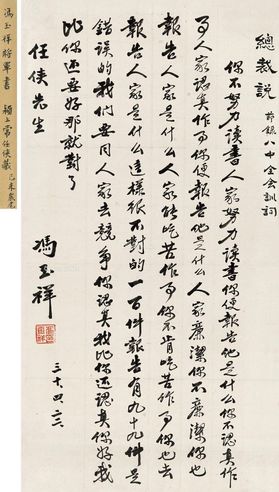 總裁説
節録八中全会訓詞
你不努力讀書人家努力讀書你便報告他是什么你不認真作
事人家認真作事你便報告他是什么人家廉潔你不廉潔你也
報告人家是什么人家能吃苦作事你不肯吃苦作事你也去
報告人家是什么這樣統不對的一百件報告有九十九件是
錯誤的我们要同人家去競爭你認真我比你還認真你好我
比你还要好那就對了
任俠先生
馮玉祥
三十四六
馮玉祥將軍書
穎上常任俠藏